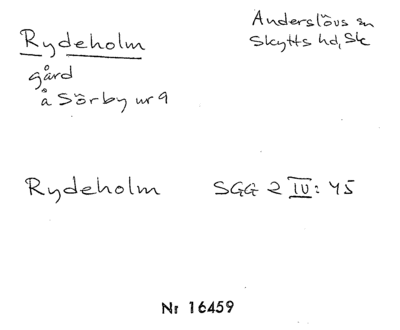 Rydeholm
gård
å Sörby nr 9
Anderslövs sn
Skytts hd, Sk
Rydeholm SGG 2 IV: 45
Nr 16459